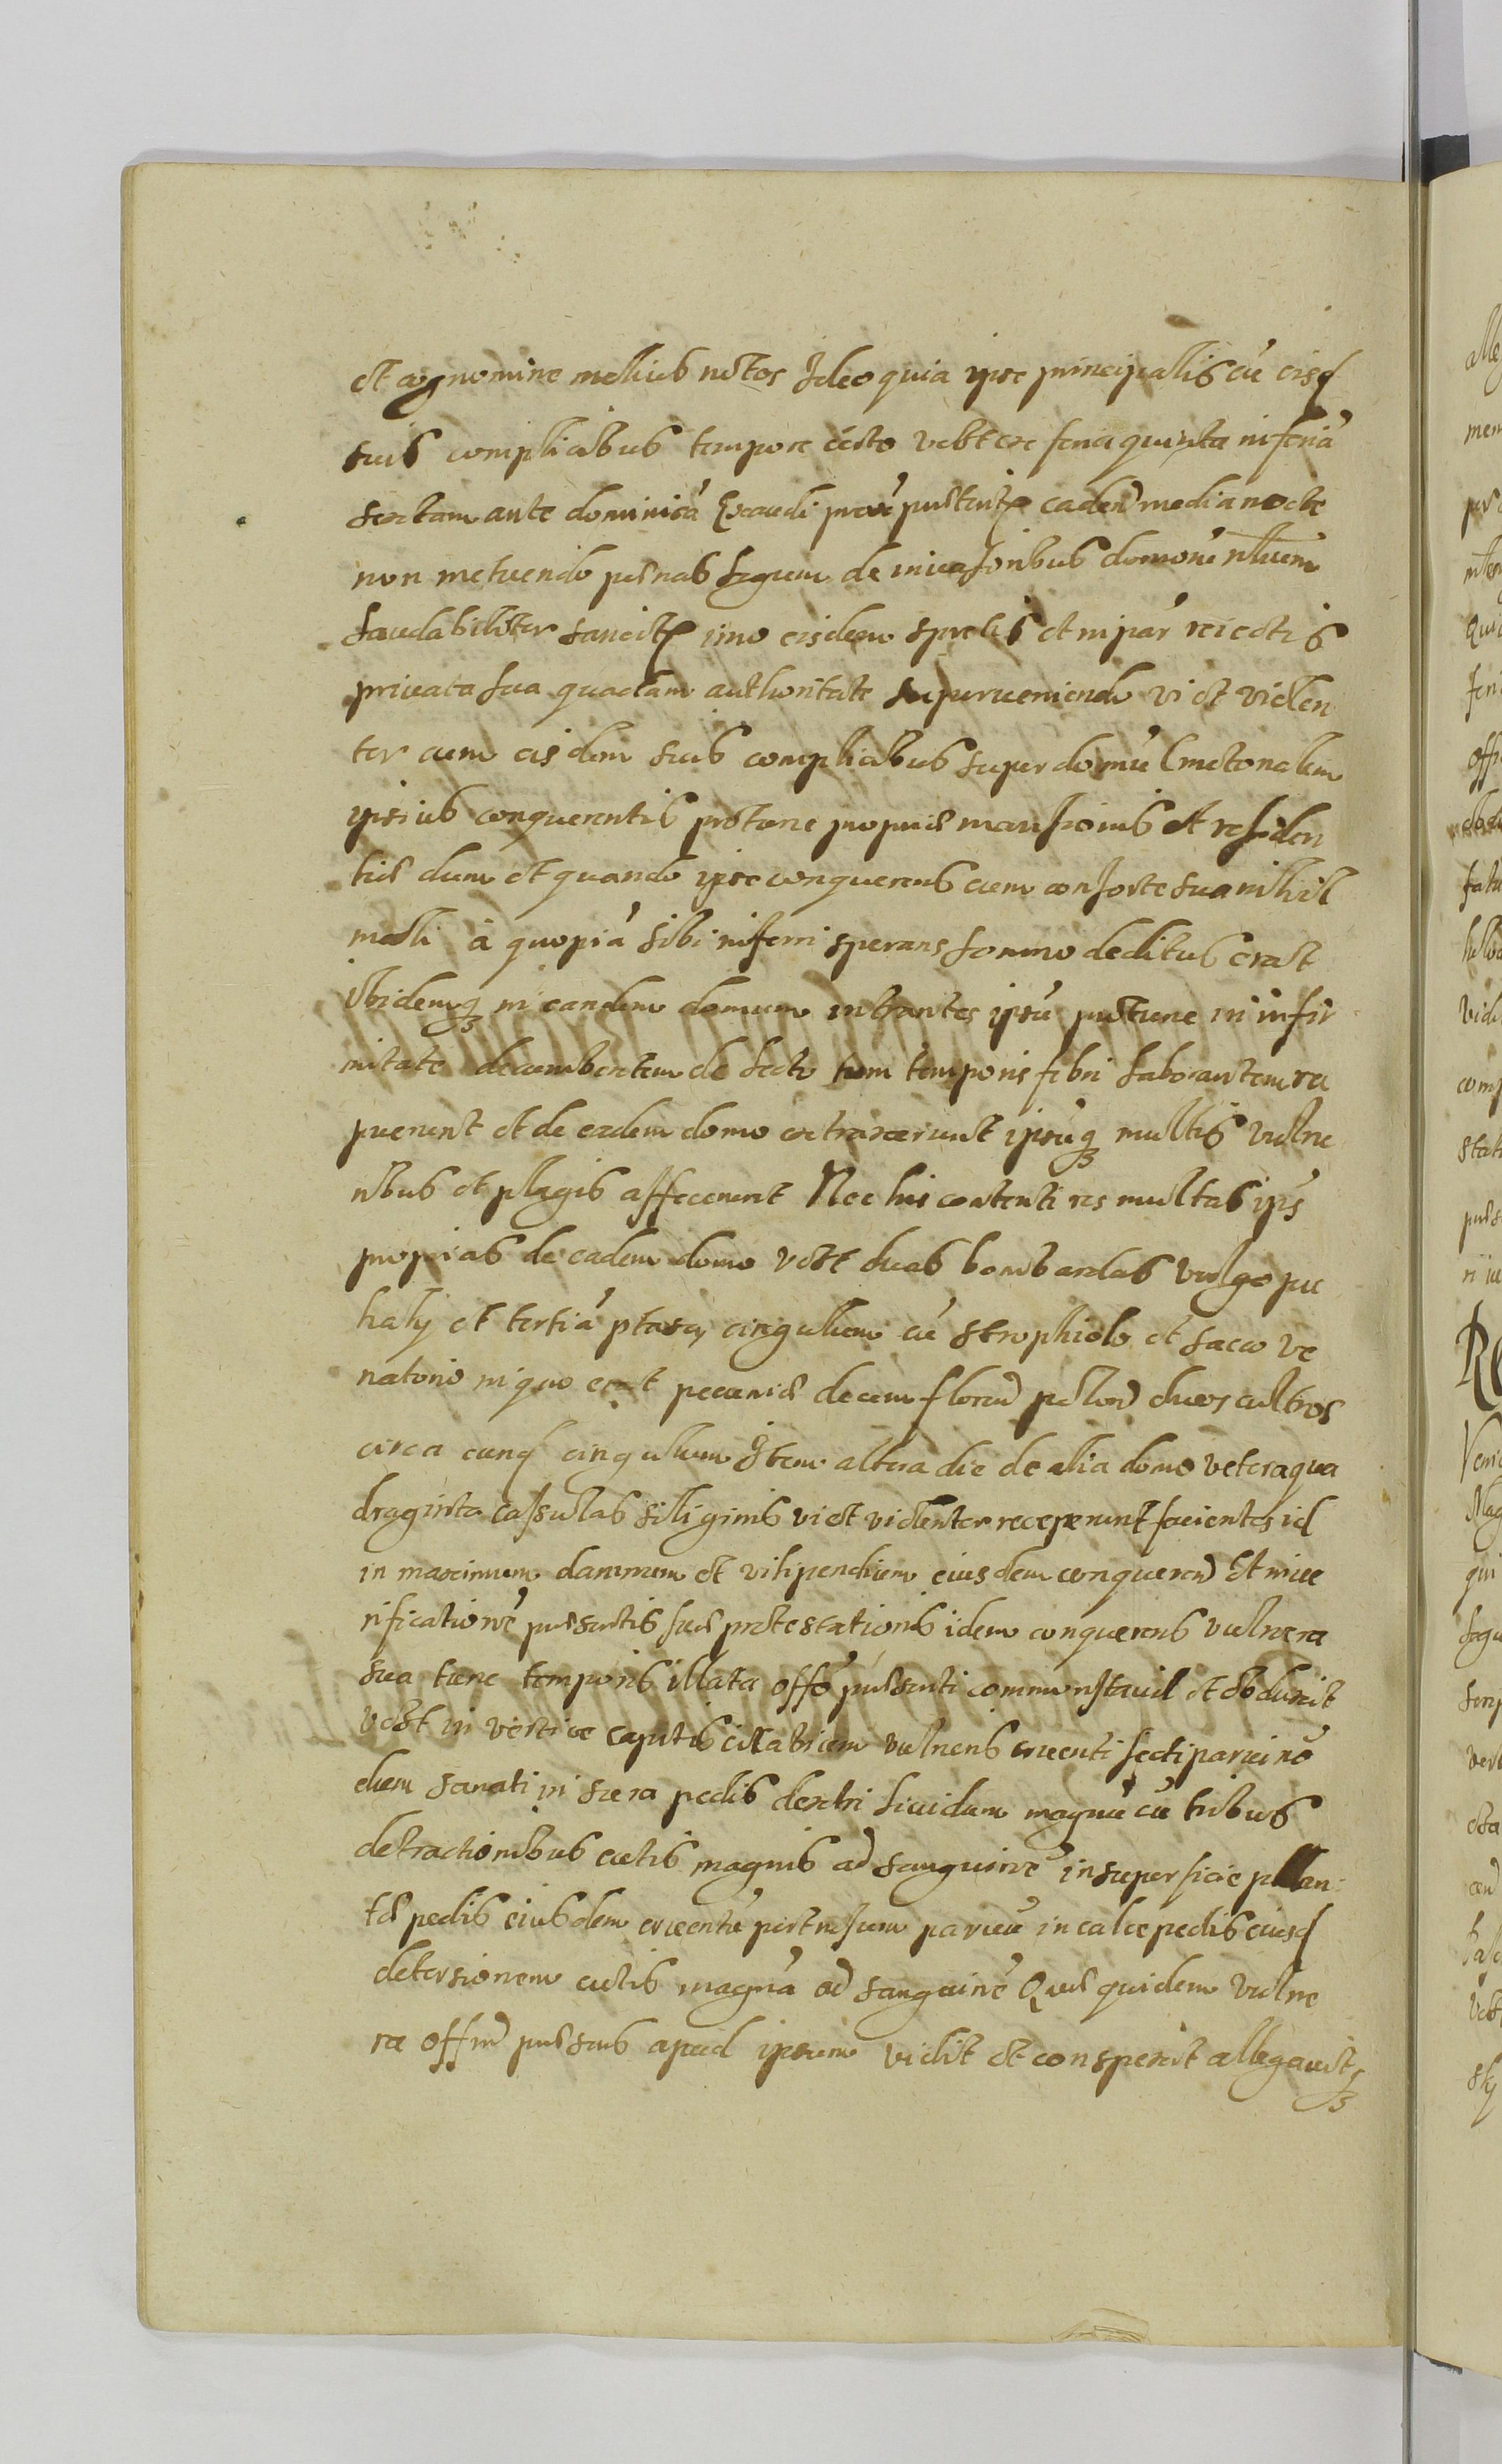 et cognomine melius notos Ideo quia ipse principallis cũ eisd
suis complicibus tempore certo vtset ex feria quinta in feriã
sextam ante dominicã Exaudi prox pṙterit eaden media nocte
non metuendo pęnas legum de inuasoribus domorũ nlium
laudabiliter sancit imo eisdem spretis et in par reiectis
priuata sua quadam authoritate superueniendo vi et violen
ter cum eisdem suis complicibus super domũ Cmetonalem
ipsius conquerentis protunc propriæ mansionis et residen
tiæ dum et quando ipse conquerens cum consorte sua nihil
malli à quopiã sibi inferri sperans somno deditus erat
Ibidemq in eandem domum intrantes ipsũ protunc in infir
mitate decumbentem de lecto tum temporis febri laborantem ra
puerunt et de eadem domo extraxerunt ipsũq multis vulne
ribus et plagis affecerunt Nec his contenti res multas ips
proprias de eadem domo vtst duas bombardas vulgo pu
halij et tertiã ptasza cingulum cũ strophiolo et sacco ve
natorio in quo erat pecuniæ decem floren polon duos cultros
circa eund cingulum Item altera die de alia domo vetera qua
draginta cassulas silliginis vi et violenter receperunt facientes id
in maximum damnum et vilipendium eiusdem conqueren Et in ve
rificationẽ præsentis suæ protestationis idem conquerens vulnera
sua tunc temporis illata offo præsenti commonstrauit et obduxit
vtst in vertice capitis cicatricem vulneris cruenti secti parui nõ
dum sanati in sura pedis dextri liuidum magnũ cũ tribus
detractionibus cutis magnis ad sanguinẽ in superficie plan
tæ pedis eiusdem cruentũ pertusum paruũ in calce pedis eiusd
detersionem cutis magnã ad sanguinẽ Quæ quidem vulne
ra offin præsens apud ipsum vidit et conspexit allegauitq